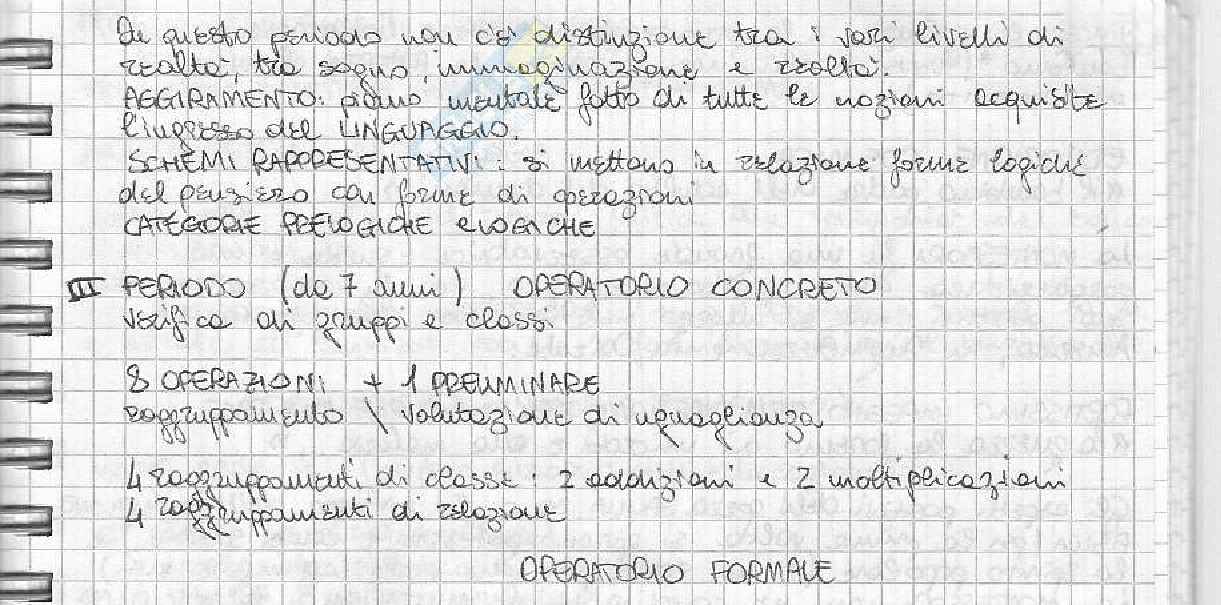 In questo periodo non c'è distinzione tra i vari livelli di
realtà, tra sogno, immaginazione e realtà.
AGGIRAMENTO: piano mentale fatto di tutte le nozioni acquisite
l'ingresso del LINGUAGGIO.
SCHEMI RAPPRESENTATIVI: si mettono in relazione forme logiche
del pensiero con forme di operazioni
CATEGORIE PRELOGICHE e LOGICHE
III PERIODO (da 7 anni) OPERATORIO CONCRETO
verifica di gruppi e classi
8 OPERAZIONI + 1 PRELIMINARE
raggruppamento \ valutazione di uguaglianza
4 raggruppamenti di classe: 2 addizioni e 2 moltiplicazioni
4 raggruppamenti di relazione
OPERATORIO FORMALE